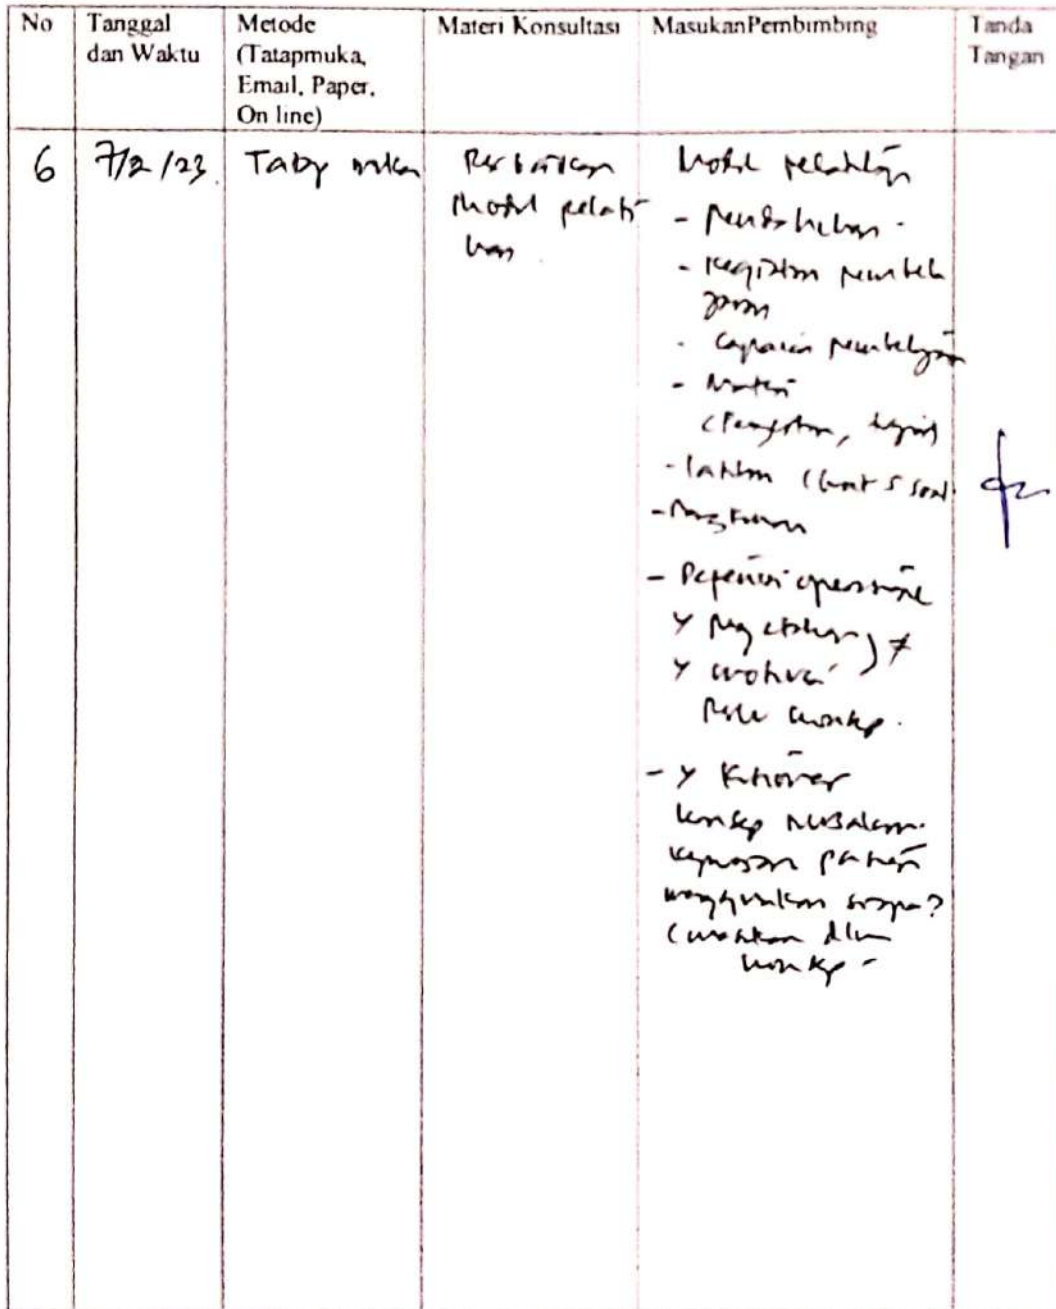 No
Tanggal
dan Waktu
Metode
(Tatapmuka,
Email, Paper,
On line)
Materi Konsultasi
MasukanPembimbing
Tanda
Tangan
6
7/2/23
Tatap muka
Perbaikan
Modul pelati
han
Modul pelatihan
- Pendahuluan
- Kegiatan pembela
jaran
- Capaian pembelajaran
- Materi
- latihan (buat 5 soal
- Rangkuman
- Definisi operasional
Y pengetahuan ) ≠
Y motivasi
- Y Kuesioner
konsep Nursalam.
kepuasan pasien
menggunakan siapa?
(masukkan dlm
konsep